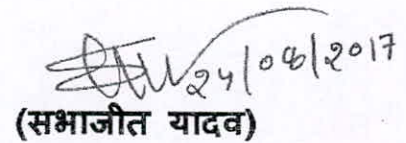 24/08/2017
(सभाजीत यादव)